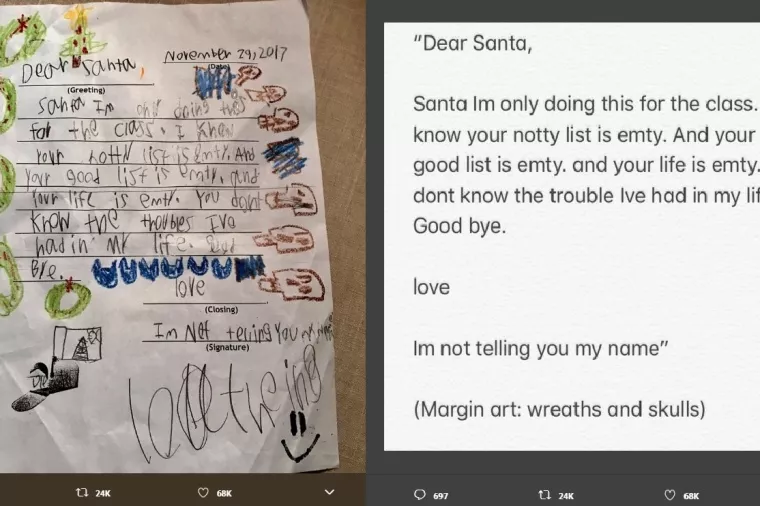 Dear Santa,
November 29, 2017
(Date)
(Greeting)
Santa Im only doing this
for the class. I know
your notty list is emty. And
your good list is emty. and
Your life is emty. You dont
know the troubles Ive
had in my life. Good
Bye.
love
(Closing)
Im Not telling You my name
(Signature)
24K
68K
"Dear Santa,
Santa Im only doing this for the class.
know your notty list is emty. And your
good list is emty. and your life is emty.
dont know the trouble Ive had in my lif
Good bye.
love
Im not telling you my name"
(Margin art: wreaths and skulls)
697
24K
68K